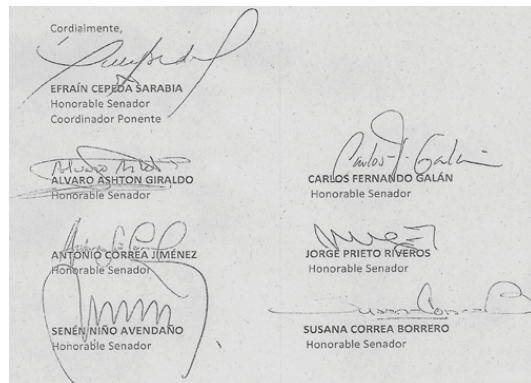 Cordialmente,
EFRAÍN CEPEDA SARABIA
Honorable Senador
Coordinador Ponente
ALVARO ASHTON GIRALDO
Honorable Senador
Carlos F. Galán
CARLOS FERNANDO GALÁN
Honorable Senador
ANTONIO CORREA JIMÉNEZ
Honorable Senador
JORGE PRIETO RIVEROS
Honorable Senador
SENÉN NIÑO AVENDAÑO
Honorable Senador
SUSANA CORREA BORRERO
Honorable Senador